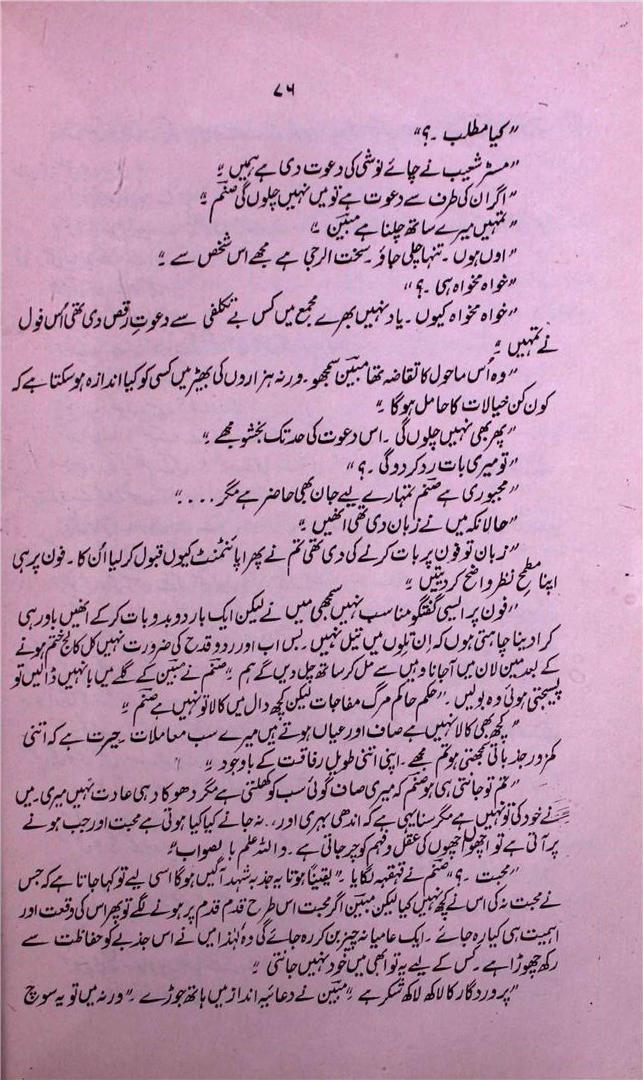 ۷۶
"کیا مطلب ۔؟"
"مسٹر شعیب نے چائے نوشی کی دعوت دی ہے ہمیں ۔"
"اگر ان کی طرف سے دعوت ہے تو میں نہیں چلوں گی صنم ۔"
"تمہیں میرے ساتھ چلنا ہے مبین ۔"
"اوں ہوں ۔ تنہا چلی جاؤ ۔ سخت الرجی ہے مجھے اس شخص سے ۔"
"خواہ مخواہ ہی ۔؟"
"خواہ مخواہ کیوں ۔ یاد نہیں بھرے مجمع میں کس بے تکلفی سے دعوتِ رقص دی تھی اُس فول
نے تمہیں ۔"
"وہ اُس ماحول کا تقاضہ تھا مبین سمجھو ۔ ورنہ ہزاروں کی بھیڑ میں کسی کو کیا اندازہ ہو سکتا ہے کہ
کون کن خیالات کا حامل ہو گا ۔"
"پھر بھی نہیں چلوں گی ۔ اس دعوت کی حد تک بخشو مجھے ۔"
"تو میری بات رد کر دو گی ۔؟"
"مجبوری ہے صنم تمہارے لیے جان بھی حاضر ہے مگر ...."
"حالانکہ میں نے زبان دی تھی انھیں ۔"
"زبان تو فون پر بات کرنے کی دی تھی تم نے پھر اپائنٹمنٹ کیوں قبول کر لیا اُن کا ۔ فون پر ہی
اپنا مطمح نظر واضح کر دیتیں ۔"
"فون پر ایسی گفتگو مناسب نہیں سمجھی میں نے لیکن ایک بار دوبدو بات کر کے انھیں باور ہی
کرا دینا چاہتی ہوں کہ اِن تلوں میں تیل نہیں ۔ بس اب اور ردو قدح کی ضرورت نہیں کل کالج ختم ہونے
کے بعد مین لان میں آجانا وہیں سے مل کر ساتھ چل دیں گے ہم ۔" صنم نے مبین کے گلے میں بانہیں ڈالیں تو
پسیجتی ہوئی وہ بولیں ۔ "حکم حاکم مرگ مفاجات لیکن کچھ دال میں کالا تو نہیں ہے صنم ۔"
"کچھ بھی کالا نہیں ہے صاف اور عیاں ہوتے ہیں میرے سب معاملات ۔ حیرت ہے کہ اتنی
کمزور جذباتی سمجھتی ہو تم مجھے ۔ اپنی اتنی طویل رفاقت کے باوجود ۔"
"تم تو جانتی ہی ہو صنم کہ میری صاف گوئی سب کو کھلتی ہے مگر دھوکا دہی عادت نہیں میری ۔ میں
نے خود کی تو نہیں ہے مگر سنا یہی ہے کہ اندھی بہری اور،،، نہ جانے کیا کیا ہوتی ہے محبت اور جب ہونے
پر آتی ہے تو اچھوں اچھوں کی عقل و فہم کو چر جاتی ہے ۔ واللہ علم بالصواب"
"محبت ۔؟" صنم نے قہقہہ لگایا ۔ "یقیناً ہوتا یہ جذبہ شہد آگیں ہو گا اسی لیے تو کہا جاتا ہے کہ جس
نے محبت نہ کی اس نے کچھ نہیں کیا لیکن مبین اگر محبت اس طرح قدم قدم پر ہونے لگے تو پھر اس کی وقعت اور
اہمیت ہی کیا رہ جائے ۔ ایک عامیانہ چیز بن کر رہ جائے گی وہ لہٰذا میں نے اس جذبے کو حفاظت سے
رکھ چھوڑا ہے ۔ کس کے لیے یہ تو ابھی میں خود نہیں جانتی ۔"
"پروردگار کا لاکھ لاکھ شکر ہے ۔" مبین نے دعائیہ انداز میں ہاتھ جوڑے ۔ "ورنہ میں تو یہ سوچ